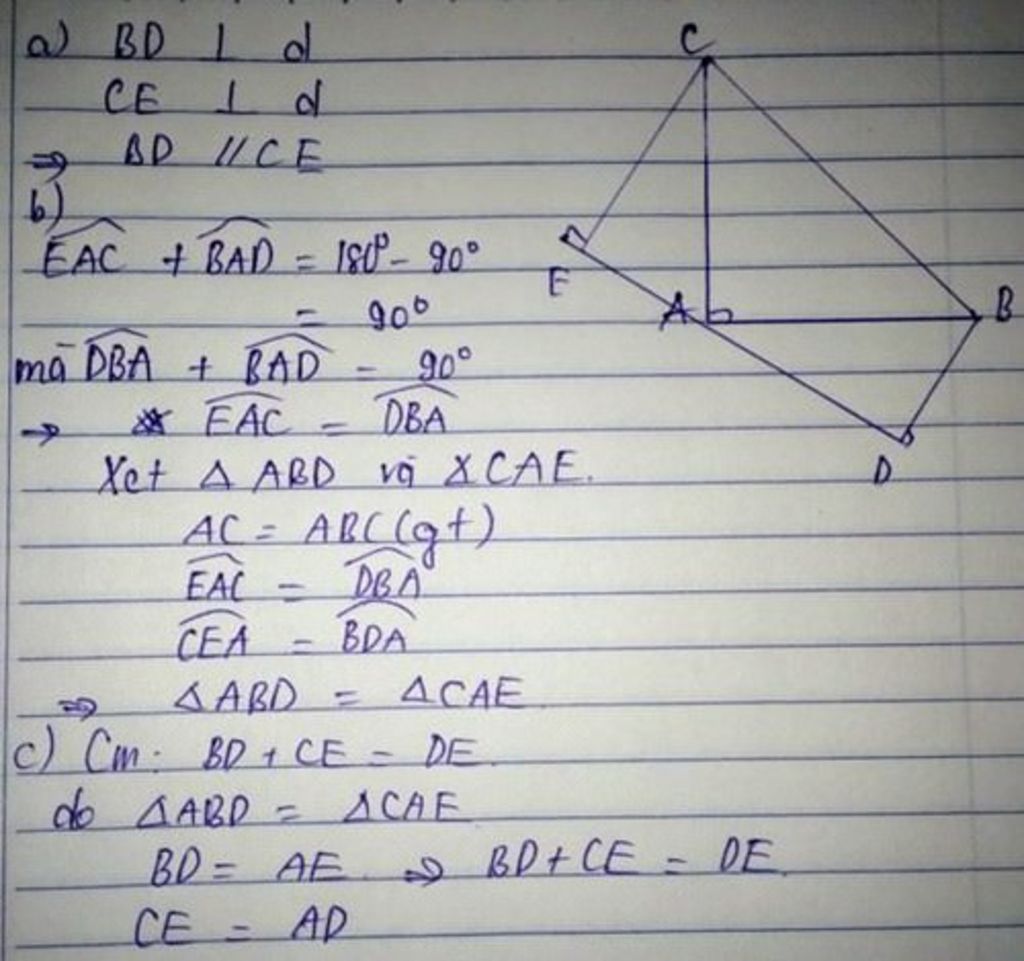 a) BD ⊥ d
CE ⊥ d
⇒ BD // CE
b)
EAC + BAD = 180° - 90°
= 90°
mà DBA + BAD = 90°
→ EAC = DBA
Xet Δ ABD và ΔCAE.
AC = ABC (gt)
EAC = DBA
CEA = BDA
⇒ ΔABD = ΔCAE
c) Cm: BD + CE = DE
do ΔABD = ΔCAE
BD = AE. ⇒ BD + CE = DE.
CE = AD
C
E
A
B
D